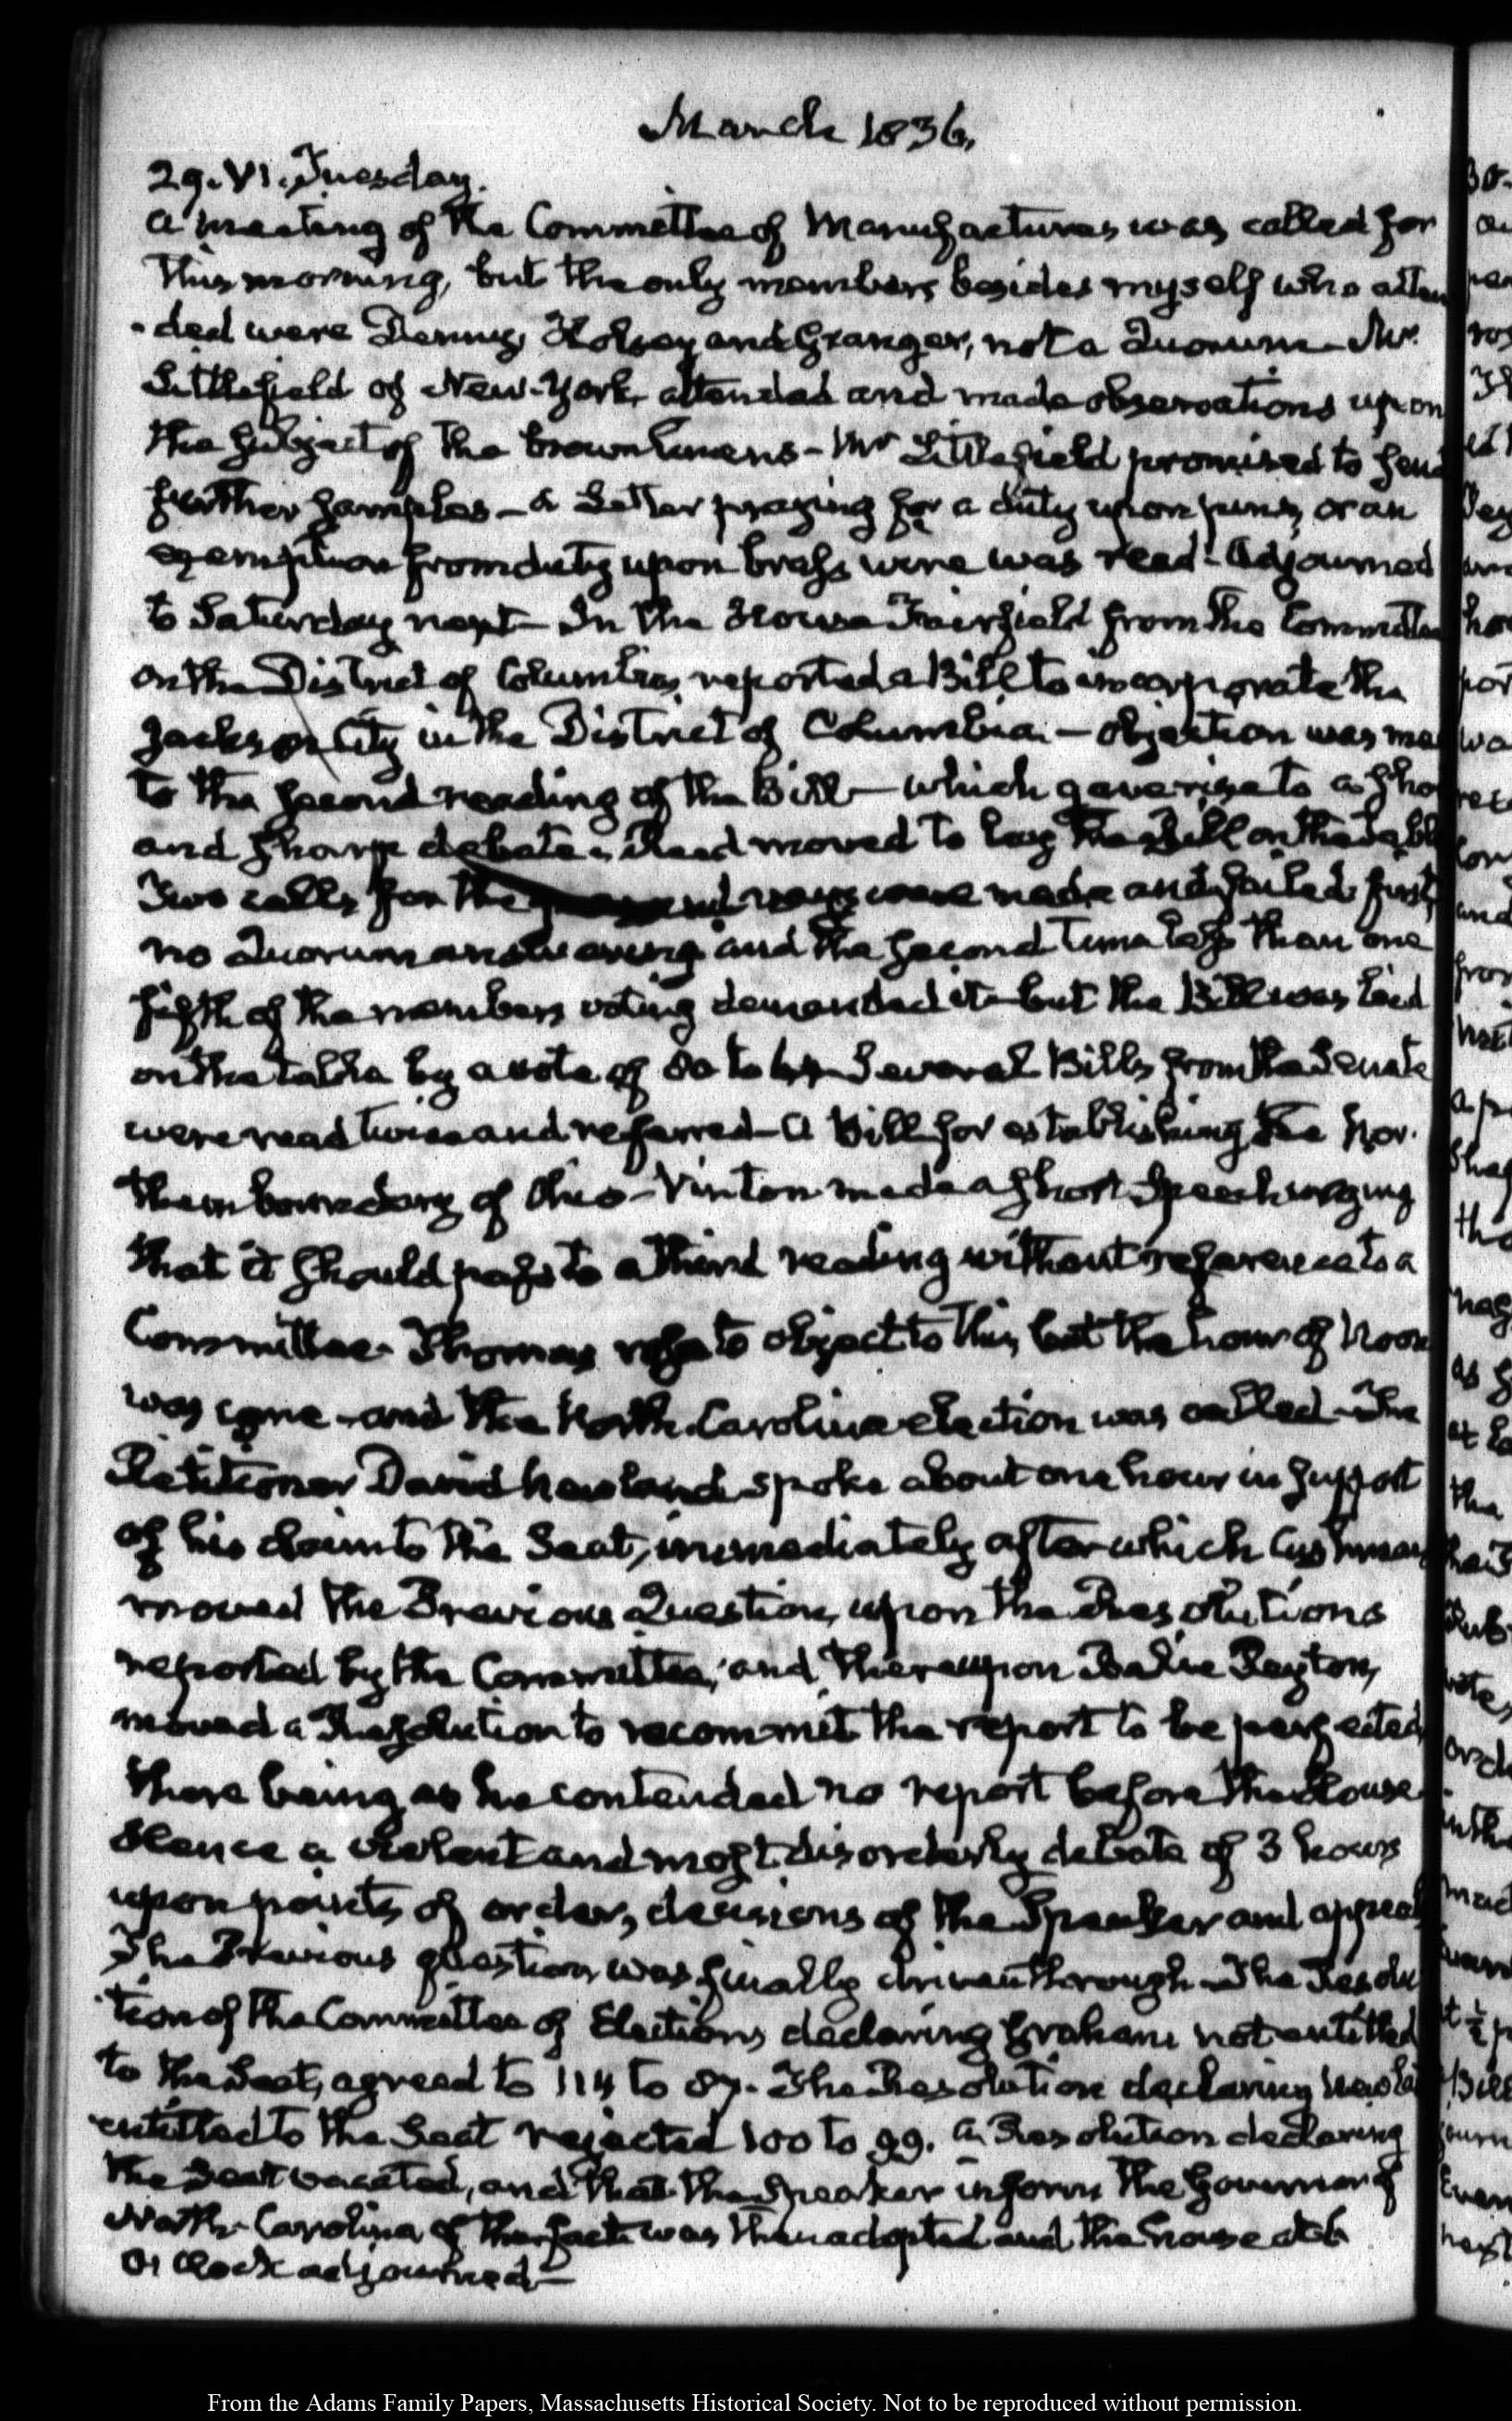 March 1836.
29. VI. Tuesday.
A meeting of the Committee of Manufactures was called for
this morning, but the only members besides myself who atten
ded were Denny, Halsey and Granger, not a Quorum — Mr.
Littlefield of New-York, attended and made observations upon
the subject of the brown linens — Mr Littlefield promised to send
further samples — a Letter praying for a duty upon pins, or an
exemption from duty upon brass wire was read — Adjourned
to Saturday next — In the House Fairfield from the Committee
on the District of Columbia, reported a Bill to incorporate the
Jackson City in the District of Columbia. — objection was ma
to the second reading of the Bill — which gave rise to a sho
and sharp debate. Reed moved to lay the Bill on the table
Two calls for the and nays were made and failed first,
no Quorum answering and the second time less than one
fifth of the members voting demanded it — but the Bill was laid
on the table by a vote of 80 to Several Bills from the Senate
were read twice and referred — A Bill for establishing the Nor.
thern boundary of Ohio — Vinton made a short Speech urging
that it should pass to a third reading without reference to a
Committee. Thomas rose to object to this, but the hour of Noon
was come — and the North-Carolina election was called — The
Petitioner David Newland spoke about one hour in support
of his claim to the Seat, immediately after which Cushman
moved the Previous Question, upon the Resolutions
reported by the Committee, and thereupon Balie Peyton,
moved a Resolution to recommit the report to be perfected
there being as he contended no report before the House
Hence a violent and most disorderly debate of 3 hours
upon points of order, decisions of the Speaker and appeal
The Previous question was finally driven through — The Resolu
tion of the Committee of Elections declaring Graham not entitled
to the Seat, agreed to 114 to 87. The Resolution declaring Newla
entitled to the Seat rejected 100 to 99. A Resolution declaring
the Seat vacated, and that the Speaker inform the Governor of
North-Carolina of the fact was then adopted and the house at 6
O'Clock adjourned —
From the Adams Family Papers, Massachusetts Historical Society. Not to be reproduced without permission.